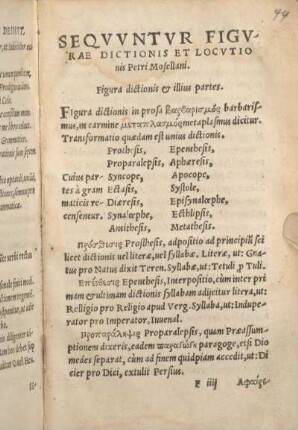 44
SEQVVNTVR FIGV
RAE DICTIONIS ET LOCVTIO
nis Petri Mosellani.
Figura dictionis & illius partes.
Figura dictionis in prosa βαρβαρισμὸς barbaris⸗
mus, in carmine μεταπλασμὸς metaplasmus dicitur.
Transformatio quædam est unius dictionis.
Prothesis, Epenthesis,
Proparalepsis, Aphæresis,
Cuius par⸗ Syncope, Apocope,
tes à gram Ectasis, Systole,
maticis re⸗ Diæresis, Episynalœphe,
censentur. Synalœphe, Ecthlipsis,
Antithesis, Metathesis.
πρόσθεσις Prosthesis, adpositio ad principiũ sci
licet dictionis uel literæ, uel syllabæ. Literæ, ut: Gna⸗
tus pro Natus dixit Teren. Syllabæ, ut: Tetuli, p Tuli.
Επένθεσις Epenthesis, Interpositio, cum inter pri
mam & ultimam dictionis syllabam adijcitur litera, ut:
Relligio pro Religio apud Verg. Syllaba, ut: Indupe⸗
rator pro Imperator, Iuuenal.
Προπαράληψις Proparalepsis, quam Præassum⸗
ptionem dixeris, eadem παραγωγὴ paragoge, est si Dio
medes separat, cum ad finem quidpiam accedit, ut: Di
cier pro Dici, extulit Persius.
F iiij Αφαίρε⸗